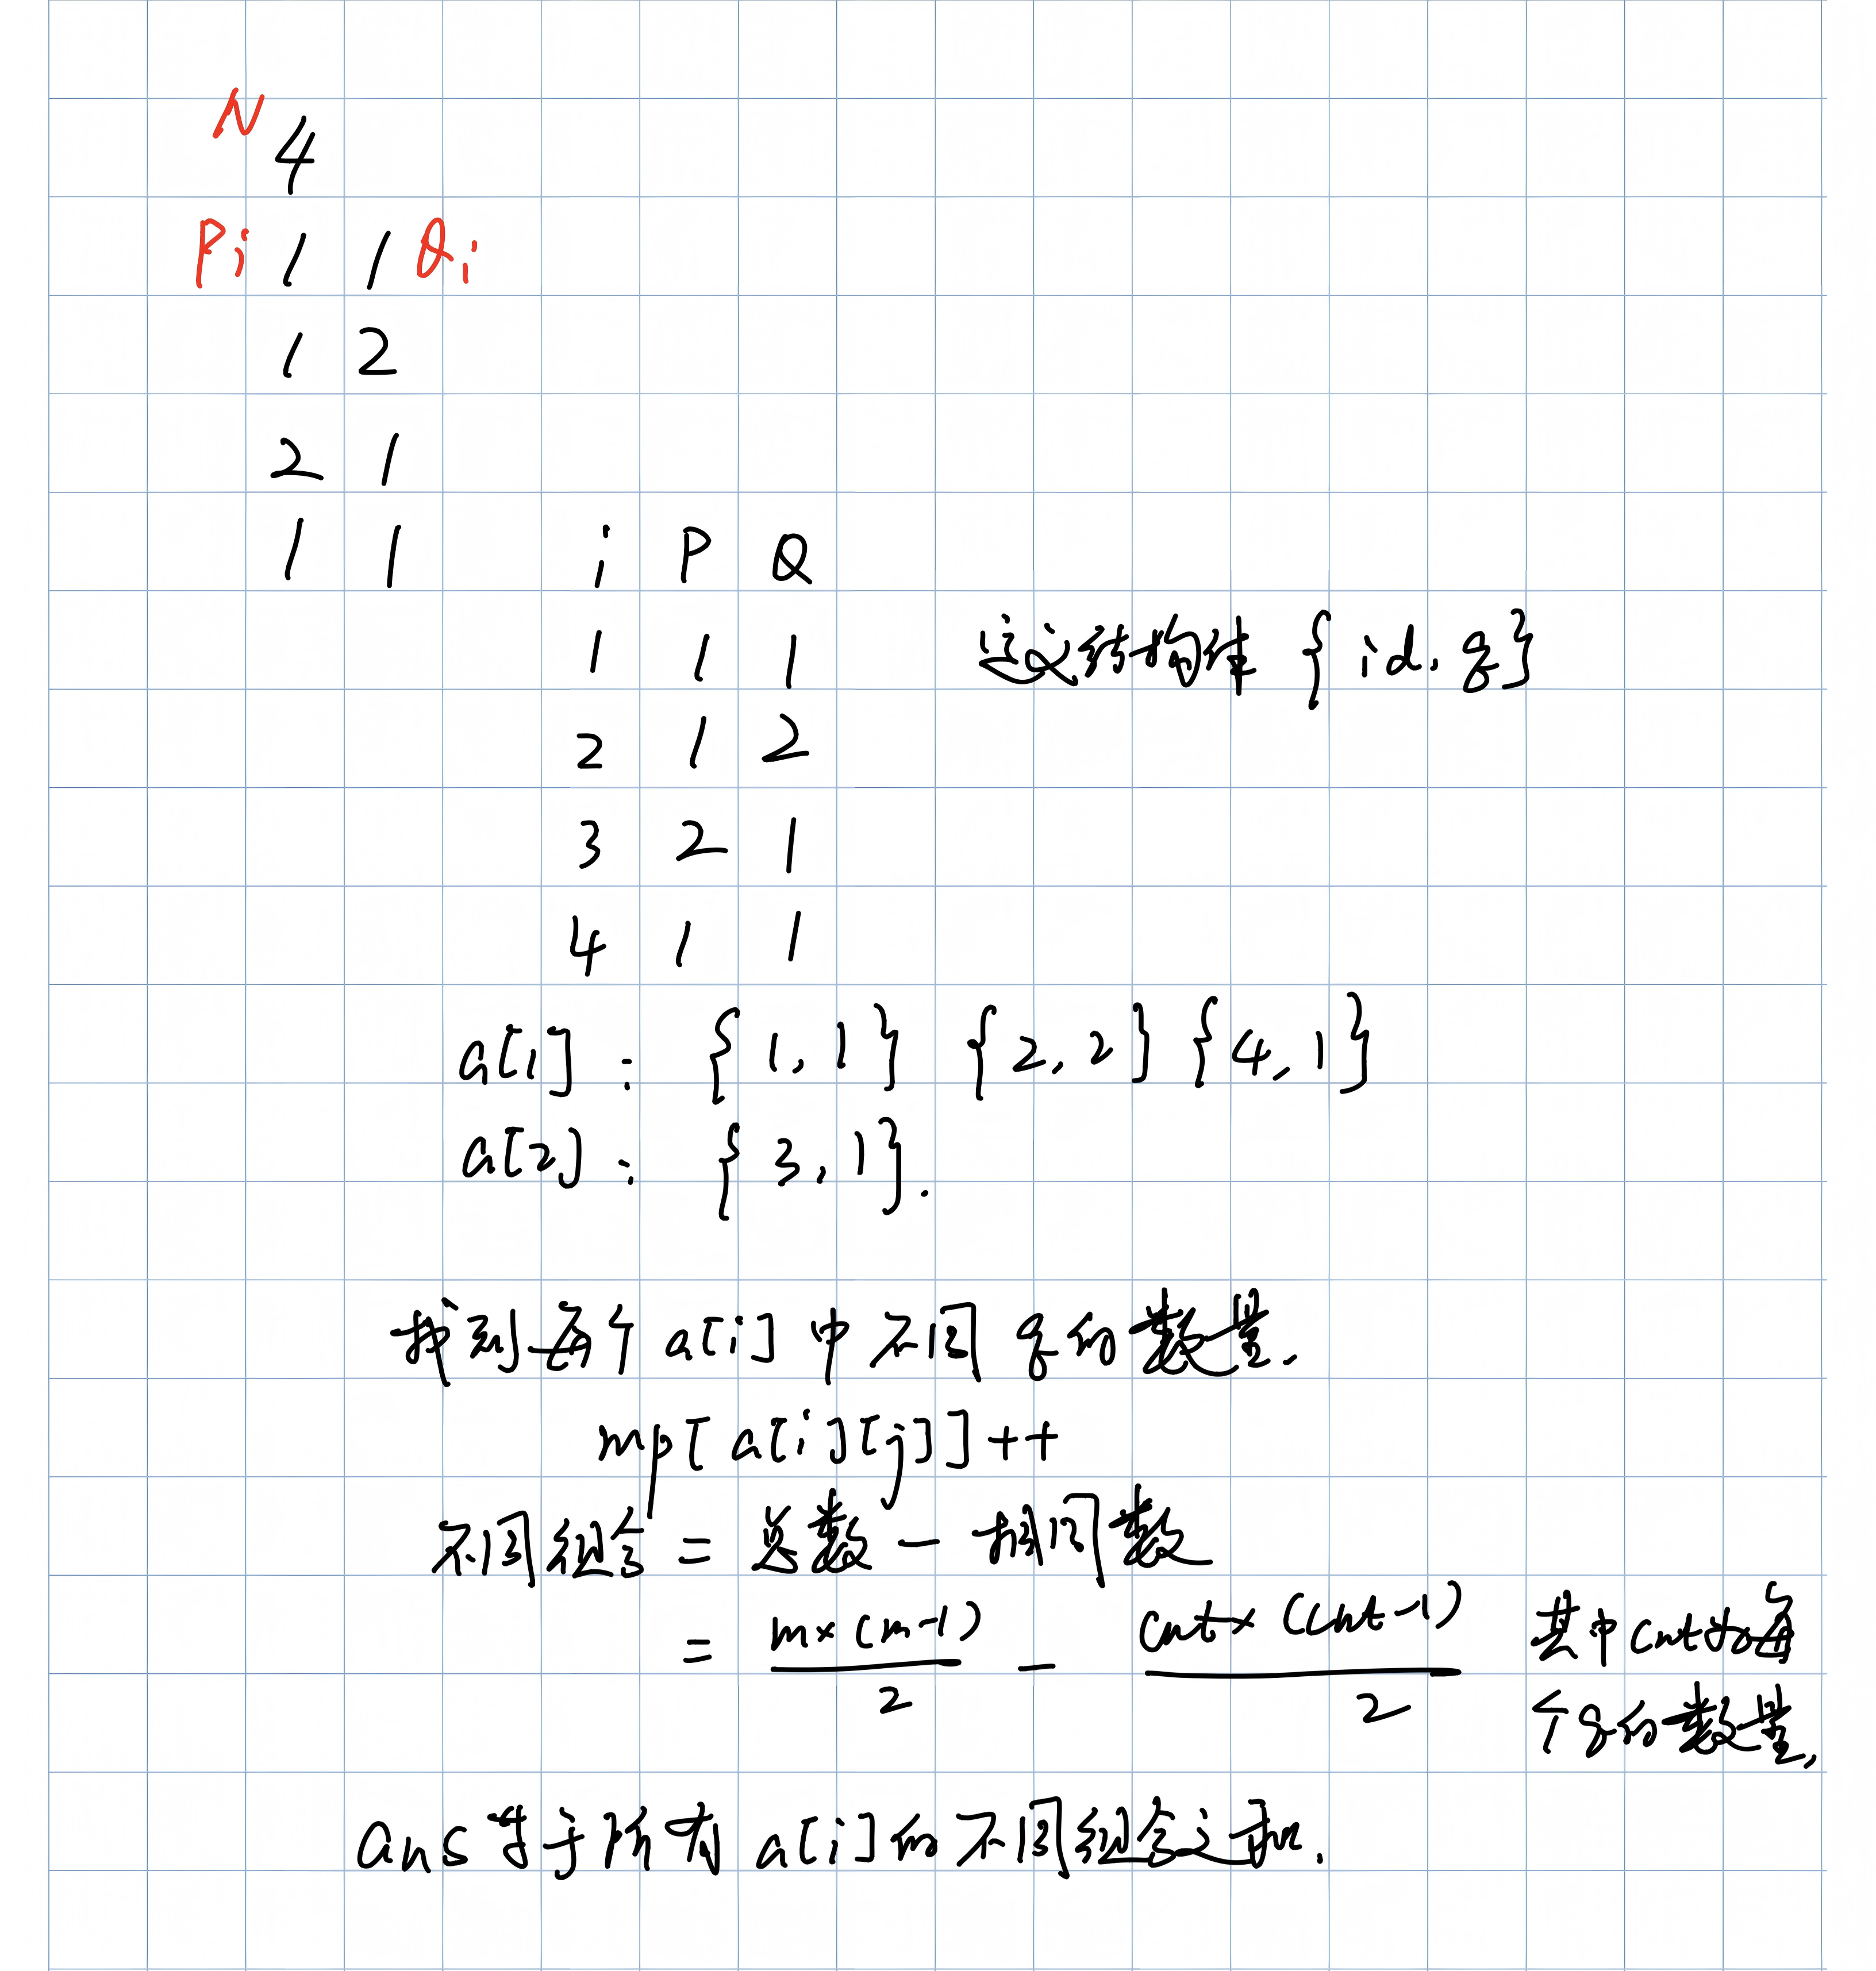 N 4
Pi 1 1 Qi
1 2
2 1
1 1 i P Q
1 1 1 定义结构体 { id, q }
2 1 2
3 2 1
4 1 1
a[1] : {1, 1} {2, 2} {4, 1}
a[2] : {3, 1}.
找到每个 a[i] 中 不同 q 的 数量.
mp[a[i][j]]++
不同组合 = 总数 - 相同数
= m×(m-1)/2 - cnt×(cnt-1)/2 其中cnt为每
个q的数量.
ans 等于所有 a[i] 的 不同组合之和.